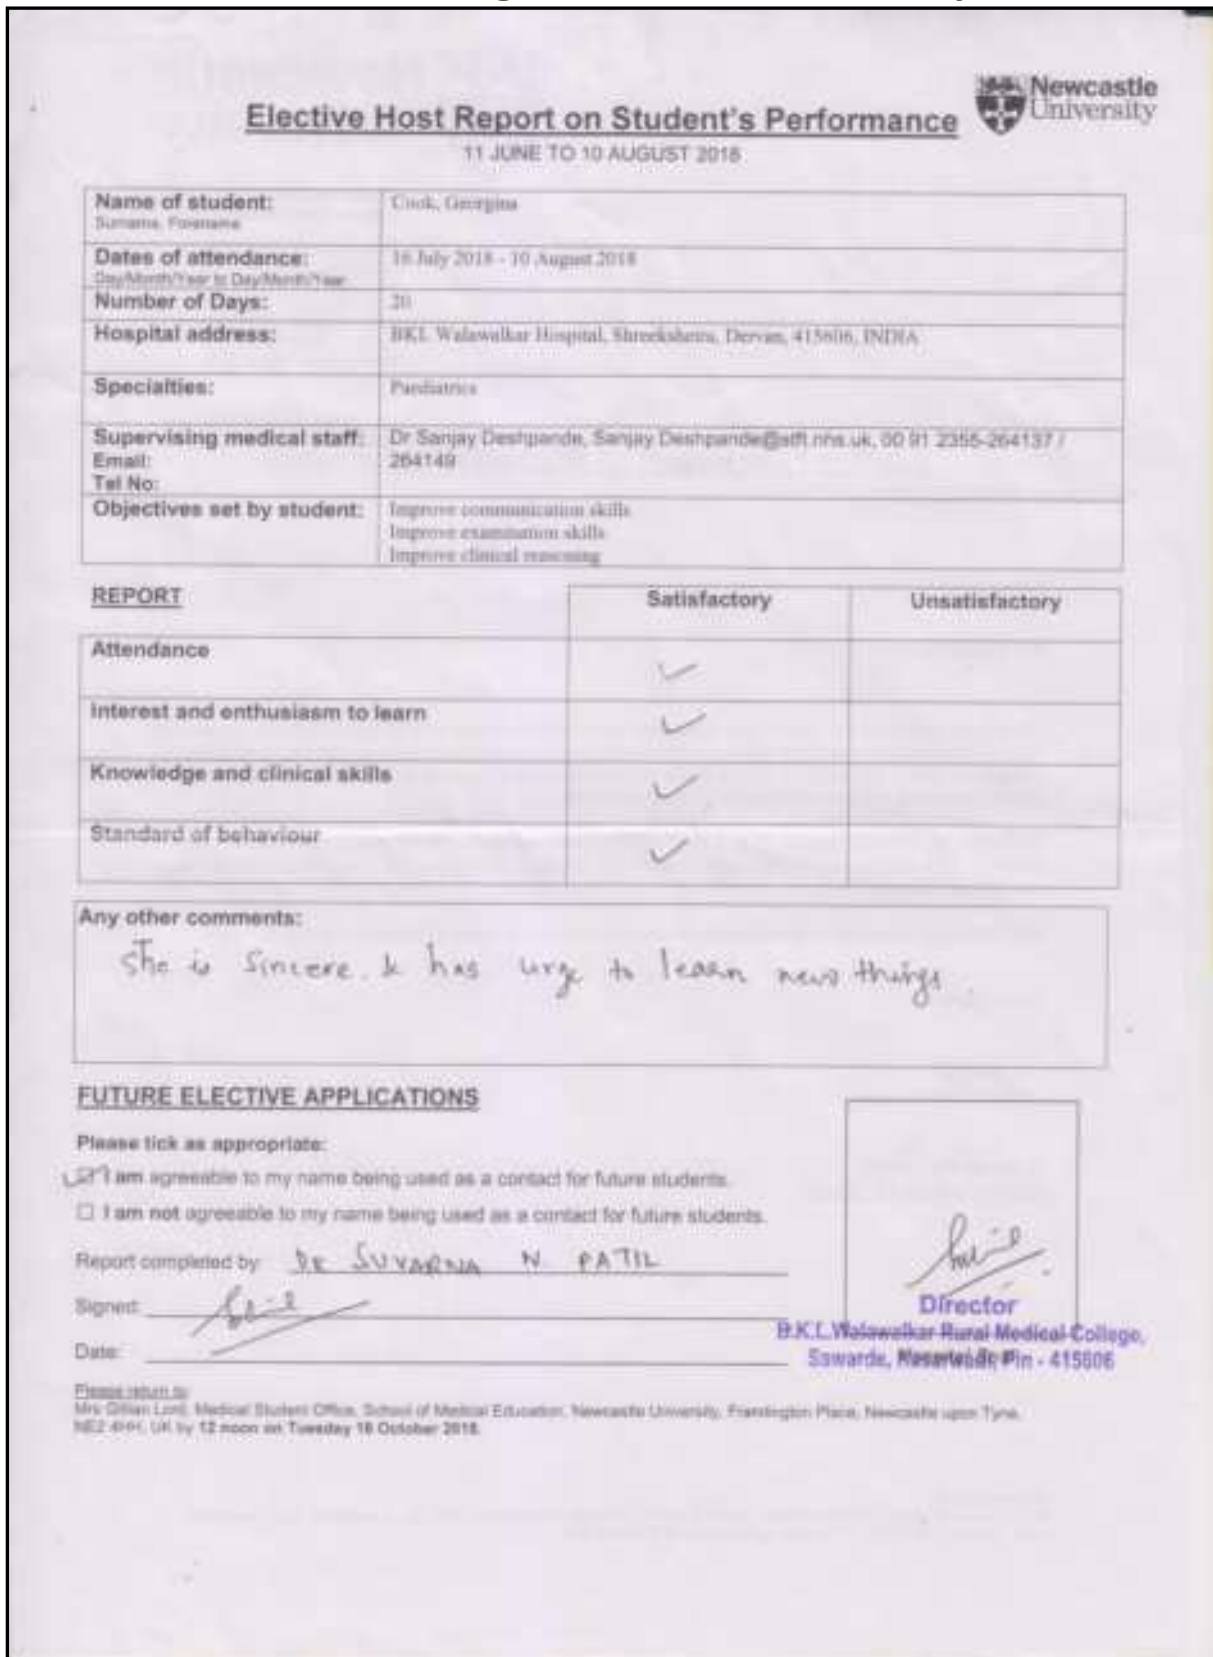 Newcastle
University
Elective Host Report on Student's Performance
11 JUNE TO 10 AUGUST 2018
Name of student:
Surname, Forename
Cook, Georgina
Dates of attendance:
Day/Month/Year to Day/Month/Year
16 July 2018 - 10 August 2018
Number of Days:
20
Hospital address:
BKL Walawalkar Hospital, Shreekshetra, Dervan, 415606, INDIA
Specialties:
Paediatrics
Supervising medical staff:
Email:
Tel No:
Dr Sanjay Deshpande, Sanjay Deshpande@stft.nhs.uk, 00 91 2355-264137 /
264149
Objectives set by student:
Improve communication skills
Improve examination skills
Improve clinical reasoning
REPORT
Satisfactory
Unsatisfactory
Attendance
Interest and enthusiasm to learn
Knowledge and clinical skills
Standard of behaviour
Any other comments:
She is sincere & has urge to learn new things.
FUTURE ELECTIVE APPLICATIONS
Please tick as appropriate:
I am agreeable to my name being used as a contact for future students.
I am not agreeable to my name being used as a contact for future students.
Report completed by: DR SUVARNA N. PATIL
Signed:
Director
B.K.L.Walawalkar Rural Medical College,
Date:
Sawarde, Pin - 415606
Please return to
Mrs Gillian Lord, Medical Student Office, School of Medical Education, Newcastle University, Framlington Place, Newcastle upon Tyne,
NE2 4HH, UK by 12 noon on Tuesday 16 October 2018.